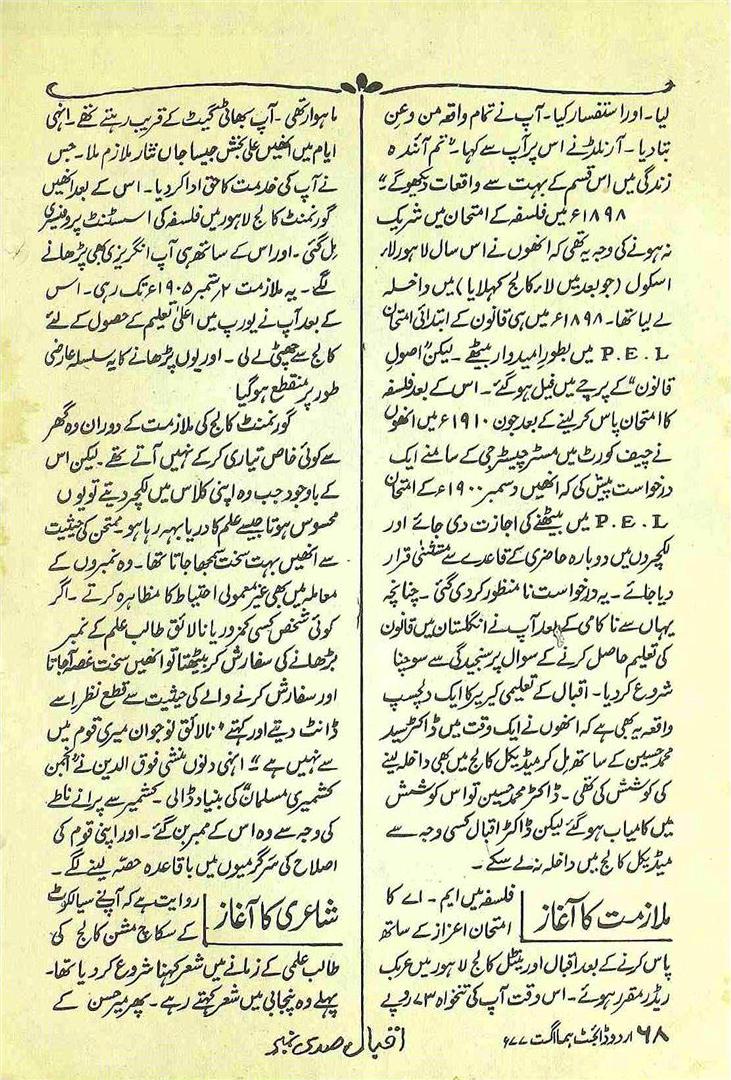 لیا۔ اور استفسار کیا۔ آپ نے تمام واقعہ من و عن
بتادیا۔ آرنلڈ نے اس پر آپ سے کہا۔ "تم آئندہ
زندگی میں اس قسم کے بہت سے واقعات دیکھو گے"
۱۸۹۸ء میں فلسفہ کے امتحان میں شریک
نہ ہونے کی وجہ یہ تھی کہ انھوں نے اس سال لاہور لار
اسکول (جو بعد میں لار کالج کہلایا) میں داخلہ
لے لیا تھا۔ ۱۸۹۸ء میں ہی قانون کے ابتدائی امتحان
P.E.L میں بطور امیدوار بیٹھے۔ لیکن "اصول
قانون" کے پرچے میں فیل ہو گئے۔ اس کے بعد فلسفہ
کا امتحان پاس کر لینے کے بعد جون ۱۹۱۰ء میں انھوں
نے چیف کورٹ میں مسٹر چیٹرجی کے سامنے ایک
درخواست پیش کی کہ انھیں دسمبر ۱۹۰۰ء کے امتحان
P.E.L میں بیٹھنے کی اجازت دی جائے اور
لکچروں میں دوبارہ حاضری کے قاعدے سے مستثنیٰ قرار
دیا جائے۔ یہ درخواست نا منظور کر دی گئی۔ چنانچہ
یہاں سے ناکامی کے بعد آپ نے انگلستان میں قانون
کی تعلیم حاصل کرنے کے سوال پر سنجیدگی سے سوچنا
شروع کر دیا۔ اقبال کے تعلیمی کیریر کا ایک دلچسپ
واقعہ یہ بھی ہے کہ انھوں نے ایک وقت میں ڈاکٹر سید
محمد حسین کے ساتھ مل کر میڈیکل کالج میں بھی داخلہ لینے
کی کوشش کی تھی۔ ڈاکٹر محمد حسین تو اس کوشش
میں کامیاب ہو گئے لیکن ڈاکٹر اقبال کسی وجہ سے
میڈیکل کالج میں داخلہ نہ لے سکے۔
ملازمت کا آغاز
فلسفہ میں ایم۔ اے کا
امتحان اعزاز کے ساتھ
پاس کرنے کے بعد اقبال اورینٹل کالج لاہور میں عربک
ریڈر مقرر ہوئے۔ اس وقت آپ کی تنخواہ ۷۳ روپے
ماہوار تھی۔ آپ بھاٹی گیٹ کے قریب رہتے تھے۔ انہی
ایام میں انھیں علی بخش جیسا جاں نثار ملازم ملا۔ جس
نے آپ کی خدمت کا حق ادا کر دیا۔ اس کے بعد انھیں
گورنمنٹ کالج لاہور میں فلسفہ کی اسسٹنٹ پروفیسری
مل گئی۔ اور اس کے ساتھ ہی آپ انگریزی بھی پڑھانے
لگے۔ یہ ملازمت ۲؍ستمبر ۱۹۰۵ء تک رہی۔ اس
کے بعد آپ نے یورپ میں اعلیٰ تعلیم کے حصول کے لئے
کالج سے چھٹی لے لی۔ اور یوں پڑھانے کا یہ سلسلہ عارضی
طور پر منقطع ہو گیا
گورنمنٹ کالج کی ملازمت کے دوران وہ گھر
سے کوئی خاص تیاری کر کے نہیں آتے تھے۔ لیکن اس
کے باوجود جب وہ اپنی کلاس میں لکچر دیتے تو یوں
محسوس ہوتا جیسے علم کا دریا بہہ رہا ہو۔ ممتحن کی حیثیت
سے انھیں بہت سخت سمجھا جاتا تھا۔ وہ نمبروں کے
معاملہ میں بھی غیر معمولی احتیاط کا مظاہرہ کرتے۔ اگر
کوئی شخص کسی کمزور یا نالائق طالب علم کے نمبر
بڑھانے کی سفارش کر بیٹھتا تو انھیں سخت غصہ آجاتا
اور سفارش کرنے والے کی حیثیت سے قطع نظر اسے
ڈانٹ دیتے اور کہتے "نالائق نوجوان میری قوم میں
سے نہیں ہے"۔ انہی دنوں منشی فوق الدین نے "انجمن
کشمیری مسلمان" کی بنیاد ڈالی۔ کشمیر سے پرانے ناطے
کی وجہ سے وہ اس کے ممبر بن گئے۔ اور اپنی قوم کی
اصلاح کی سرگرمیوں میں باقاعدہ حصہ لینے لگے۔
شاعری کا آغاز
روایت ہے کہ آپ نے سیالکوٹ
کے سکاچ مشن کالج کی
طالب علمی کے زمانے میں شعر کہنا شروع کر دیا تھا۔
پہلے وہ پنجابی میں شعر کہتے رہے۔ پھر میر حسن کے
۶۸ اردو ڈائجسٹ ہما اگست ۷۷ء
اقبال صدی نمبر